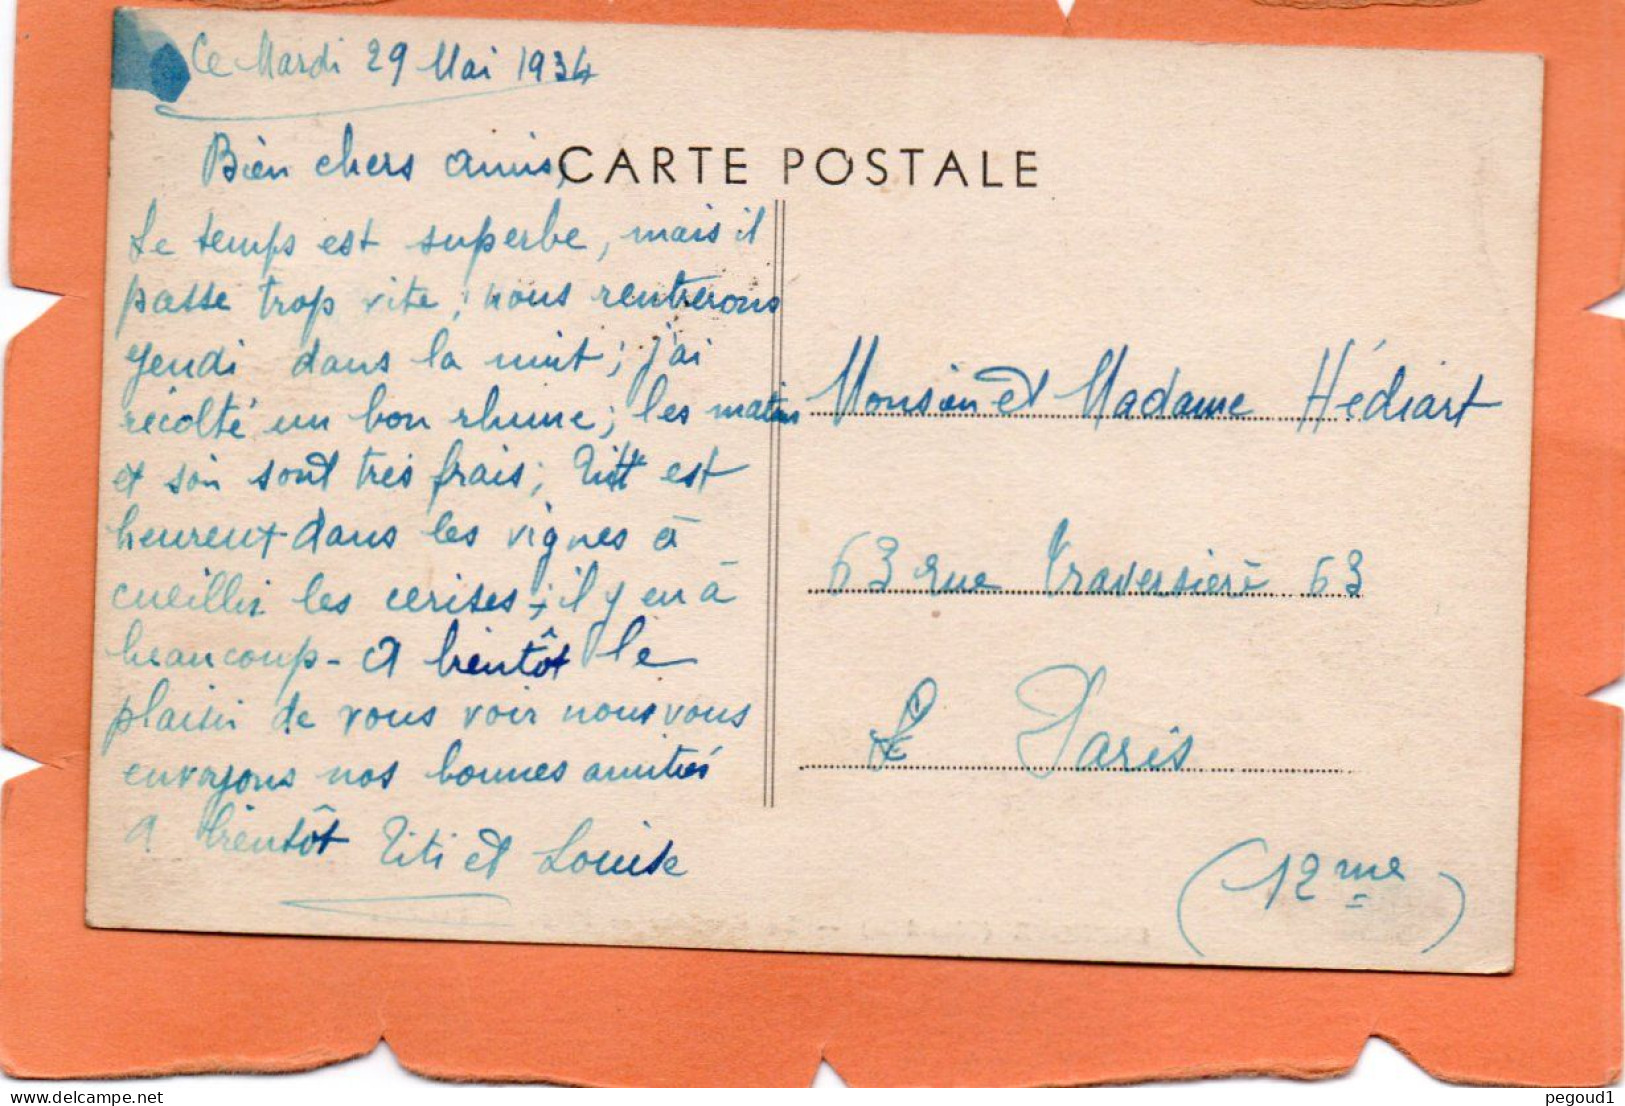 Ce Mardi 29 Mai 1934
Bien chers amis,
CARTE POSTALE
Le temps est superbe, mais il
passe trop vite, nous rentrerons
Jeudi dans la nuit; j'ai
récolté un bon rhume; les matins
et soir sont très frais; Titi est
heureux dans les vignes à
cueillir les cerises, il y en à
beaucoup - A bientôt le
plaisir de vous voir nous vous
envoyons nos bonnes amitiés
A bientôt Titi et Louise
Monsieur et Madame Hédiart
63 rue Traversière 63
Paris
(12me)
delcampe.net
pegoud1